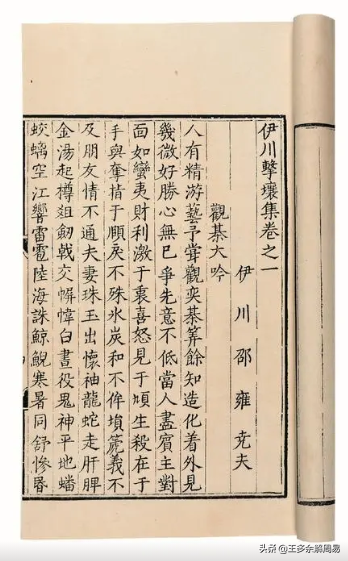 伊川擊壤集卷之一
伊川邵雍尭夫
觀棊大吟
人有精游藝予甞觀奕棊筭餘知造化着外見
幾微好勝心無已爭先意不低當人盡賔主對
面如蠻夷財利激于衷喜怒見于頄生殺在于
手與奪指于頤戾不殊氷炭和不侔塤篪義不
及朋友情不通夫妻珠玉出懷袖龍蛇走肝脾
金湯起樽俎劒戟交幈幃白晝役鬼神平地蟠
蛟螭空江響雷雹陸海誅鯨鯢寒暑同舒慘昏
头条 @王多余解周易